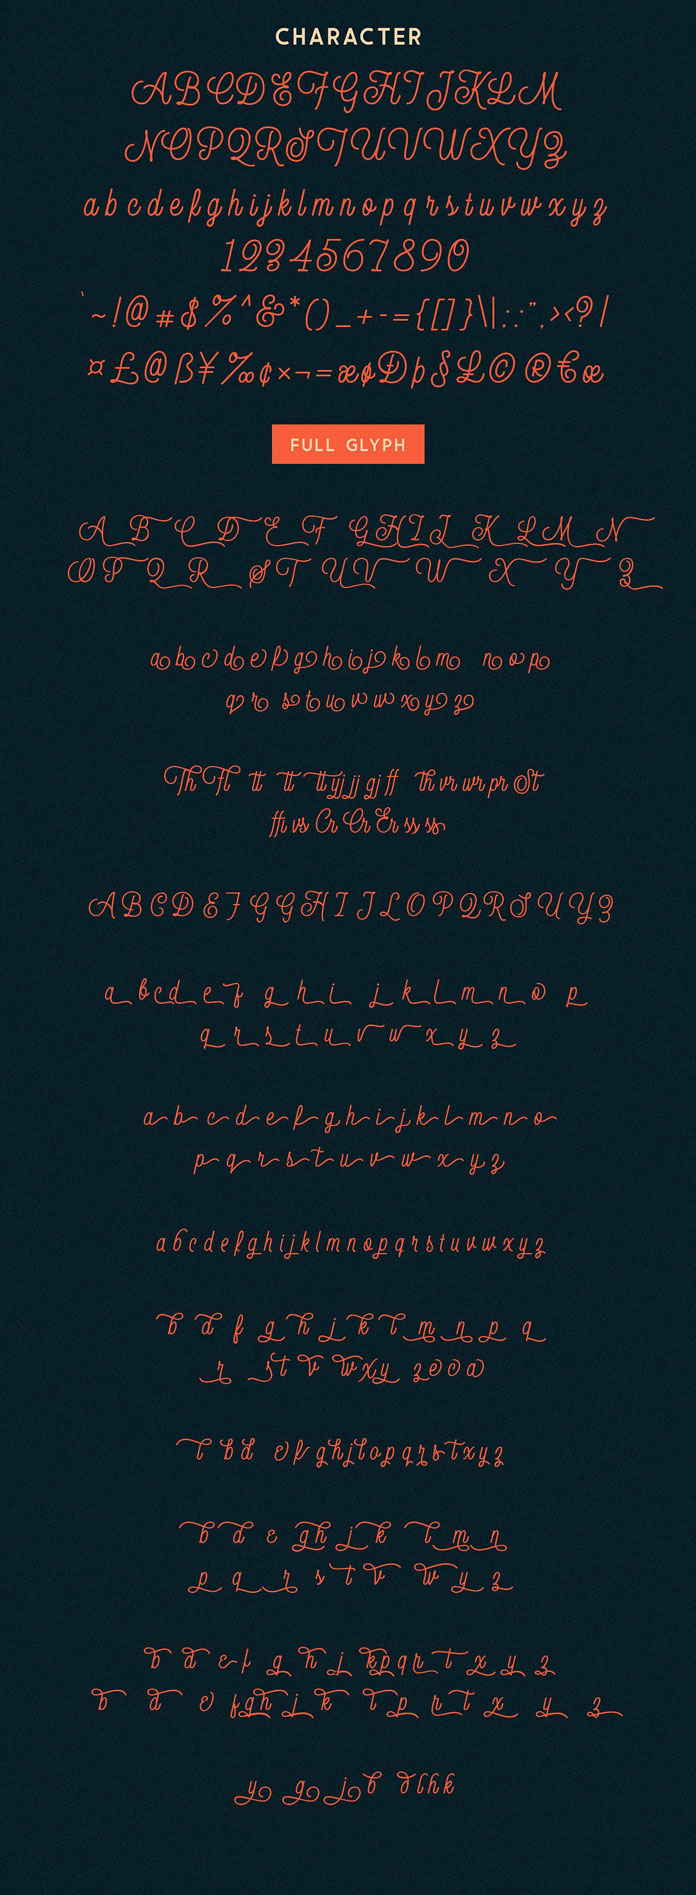 CHARACTER
ABCDEFGHIJKLM
NOPQRSTUVWXYZ
abcdefghijklmnopqrstuvwxyz
1234567890
`~!@#$%^&*()_+-={[]}\|;:",><?/
¤£@ß¥‰¢×¬=æøÐþ§£©®€œ
FULL GLYPH
A B C D E F G H I J K L M N
O P Q R S T U V W X Y Z
a b c d e f g h i j k l m n o p
q r s t u v w x y z
Th Fl tt tt tt yj jj gj ff th vr wr pr St
ffi vs Cr Cr Er ss ss
A B C D E F G G H I J L O P Q R S U Y Z
a b c d e f g h i j k l m n o p
q r s t u v w x y z
a b c d e f g h i j k l m n o
p q r s t u v w x y z
a b c d e f g h i j k l m n o p q r s t u v w x y z
b d f g h j k l m n p q
r s t v w x y z e o o a
l b d e f g h j l o p q r s t x y z
b d e g h j k l m n
p q r s t v w y z
b d e f g h j k p q r t x y z
b d e f g h j k l p r t x y z
y g j b d l h k